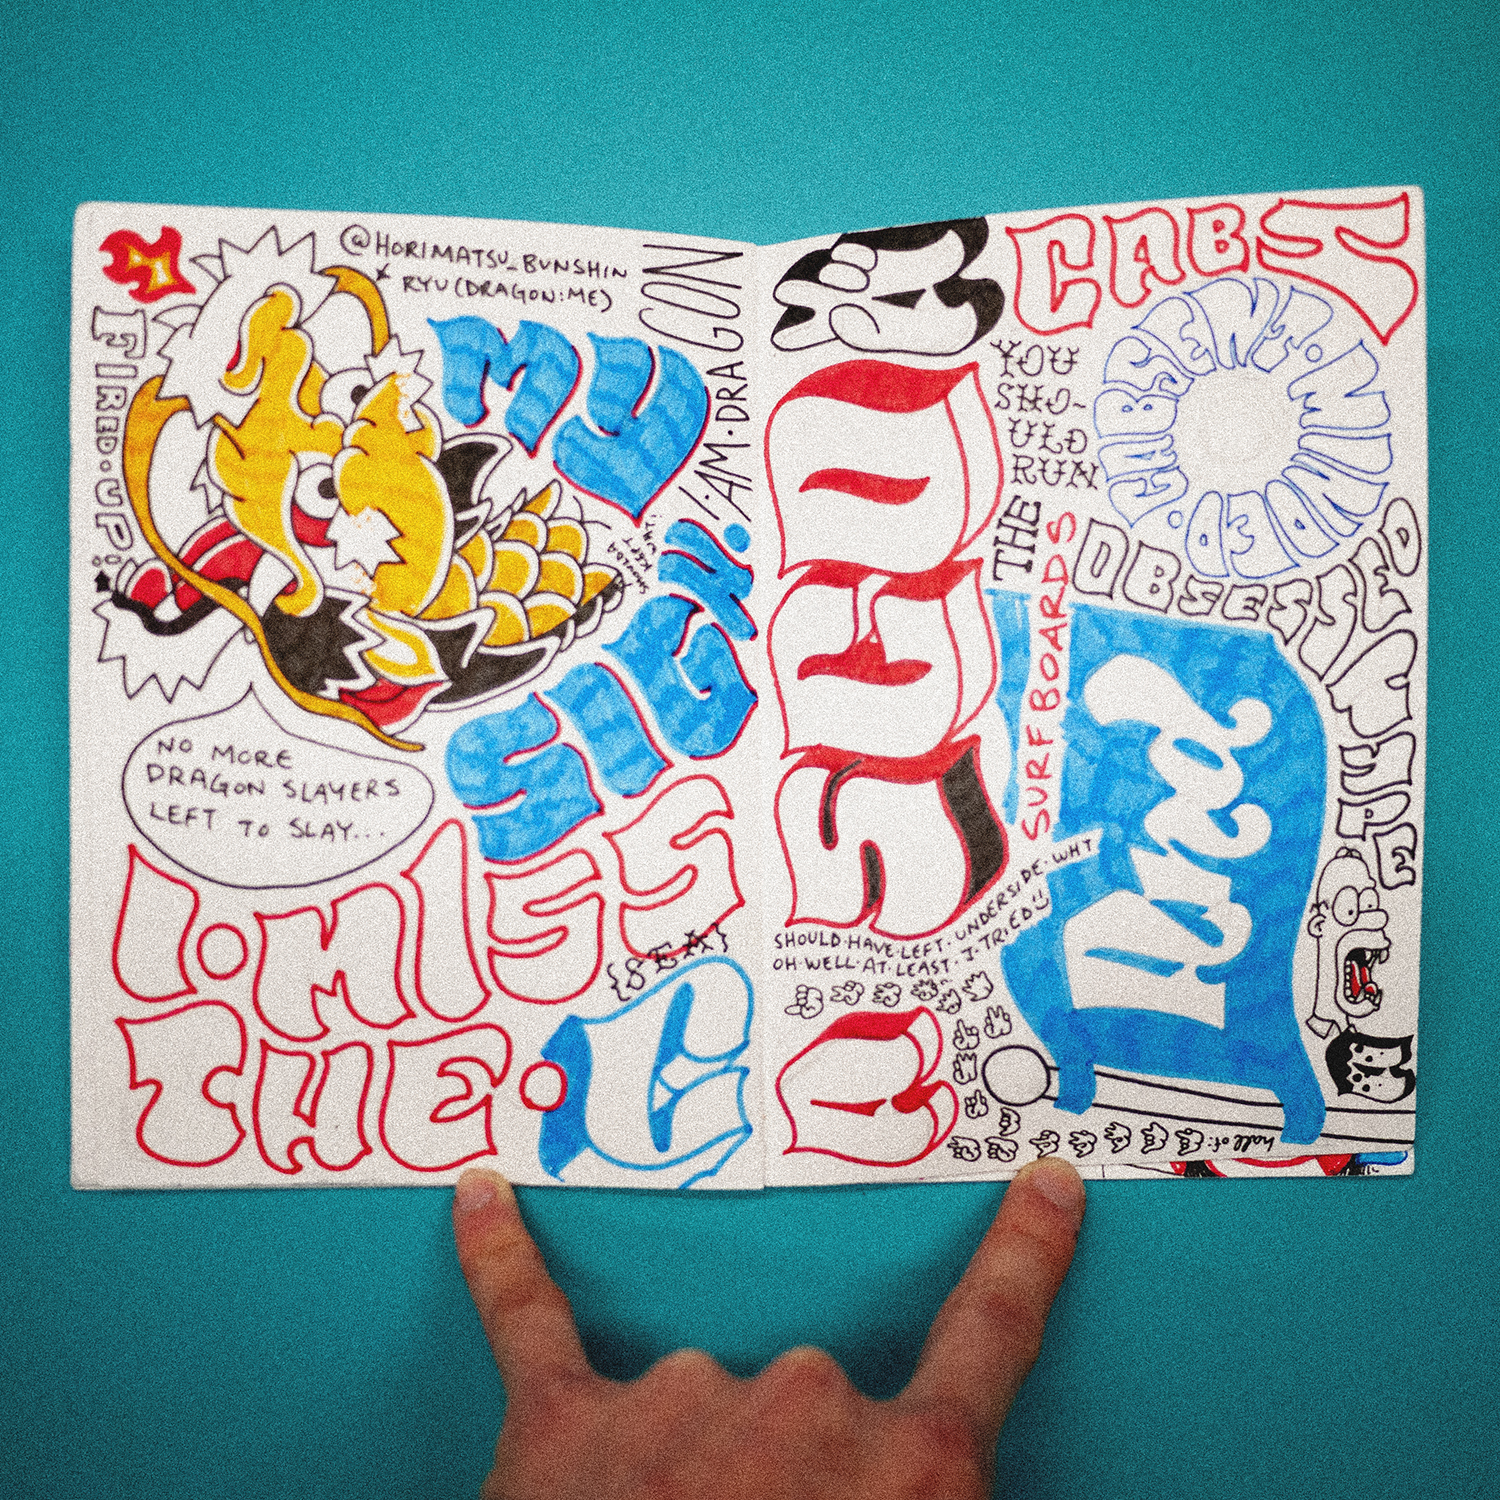 @HORIMATSU_BUNSHIN
RYU (DRAGON:ME)
FIRED.UP!
MY
SIGH.
I·AM·DRAGON
SHOULDA
KEPT
WHT.
NO MORE
DRAGON SLAYERS
LEFT TO SLAY...
I·MISS
THE·C
{SEA}
CABS
YOU
SHO-
ULD
RUN
THE
SURFBOARDS
CABSENT·MINDED·
OBSESSIVE
SHOULD·HAVE·LEFT·UNDERSIDE·WHT
OH·WELL·AT·LEAST·I·TRIED
hall of: